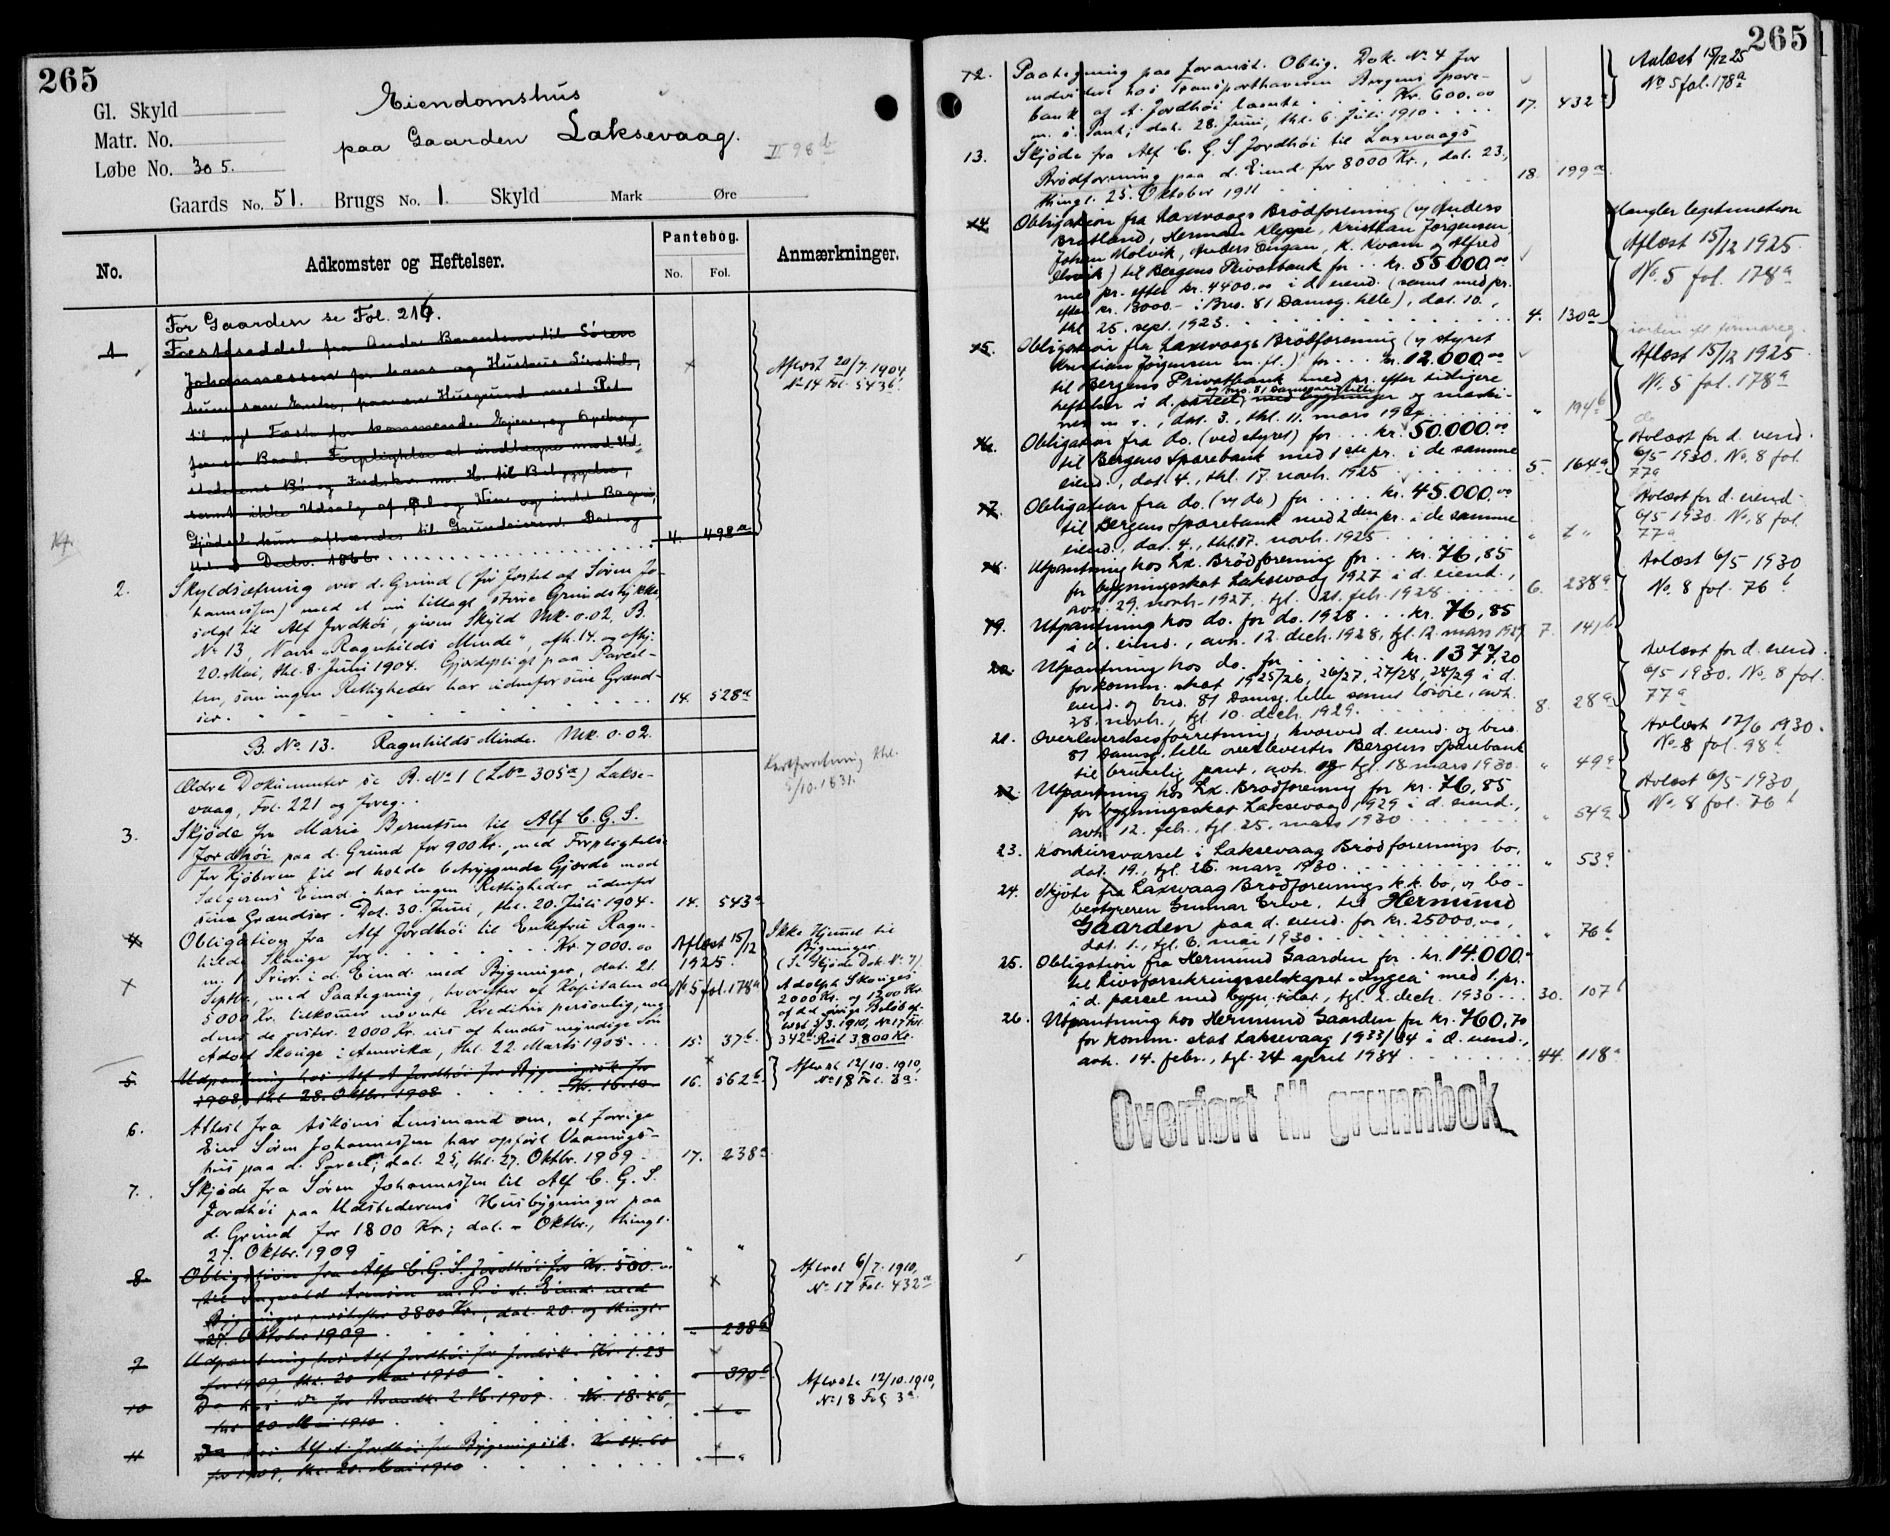 265
Gl. Skyld
Matr. No.
Løbe No. 305.
Eiendomshus
paa Gaarden Laksevaag.
II 98 b
Gaards No. 51. Brugs No. 1. Skyld Mark Øre
No.
Adkomster og Heftelser.
Pantebog.
No. Fol.
Anmærkninger.
For Gaarden se Fol. 216.
1 Fæsteseddel fra Anders Berentsen til Søren
Johannessen for hans og Hustrus Livstid,
samt ikke Udsalg af Øl og Vin og intet Bageri,
Gjødsel kun afhændes til Grundeieren. Dat. og
thl. Decbr. 1866. 4. 498a
Aflæst 20/7 1904
No 14 Fol. 543b
2. Skyldsætning over d. Grund (før fæstet af Søren Jo-
hannessen) med et nu tillagt større Grundstykke
solgt til Alf Jordhøi, given Skyld Mk. 0.02, B.
No 13, Navn "Ragnhilds Minde", afh. 14. og afhj.
20. Mai, thl. 8. Juni 1904. Gjerdepligt paa Parcel-
len, som ingen Rettigheder har udenfor sine Grænd-
ser. 14. 528a
B. No. 13. Ragnhilds Minde. Mk. 0.02.
Kartforretning thl.
5/10.1831.
Ældre Dokumenter se B. No 1 (LNo 305a) Lakse-
vaag, Fol. 221 og foreg.
3. Skjøde fra Marie Berntsen til Alf C. G. S.
Jordhøi paa d. Grund for 900 Kr., med Forpligtelse
for Kjøberen til at holde betryggende Gjærde mod
Sælgerens Eiend. har ingen Rettigheder udenfor
sine Grændser. Dat. 30. Juni, thl. 20. Juli 1904. 14. 543a
4 Obligation fra Alf Jordhøi til Enkefru Ragn-
hilde Skauge for Kr. 7000.00
m. 1 Prior. i d. Eiend. med Bygninger, dat. 21.
Septbr., med Paategning, hvorefter af Kapitalen de
5000 Kr. tilkommer nævnte Kreditrix personlig, me-
dens de rester. 2000 Kr. eies af hendes myndige Søn
Adolf Skauge i Amerika, thl. 22. Marts 1905. 15. 37b
Aflæst 15/12
1925.
No 5 fol. 178a
Ikke Hjemmel til
Bygninger
(Se Skjøde Dok. No. 7)
Adolph Skauges
2000 Kr. og 1200 Kr.
af det øvrige Beløb af-
læst 3/3.1910, No 17 Fol.
342a Rest 3800 Kr.
5. Udpantning hos Alf A Jordhøi for Bygningssk. for
1908, thl. 28. Oktbr. 1908 Kr. 16.10 16. 562b
Aflæst 12/10.1910,
No 18 Fol. 3a.
6. Attest fra Askøens Lensmand om, at forrige
Eier Søren Johannessen har opført Vaanings-
hus paa d. Parcel; dat. 25, thl. 27. Oktbr. 1909. 17. 238a
7. Skjøde fra Søren Johannessen til Alf C. G. S.
Jordhøi paa Udstederens Husbygninger paa
d. Grund for 1800 Kr.; dat. - Oktbr., thingl.
27. Oktbr. 1909 " "
8 Obligation fra Alf C. G. S. Jordhøi for Kr. 500.00
til Ingvald Arnesen m. Pr. i d. Eiend. med
Bygninger næstefter 3800 Kr., dat. 20. og thingl.
27. Oktober 1909 " 238b
Aflæst 6/7.1910,
No 17 Fol. 432a
9 Udpantning hos Alf Jordhøi for Jordsk. Kr. 1.23
for 1909, thl. 20 Mai 1910 " 390b
10 Do hos Do for Brandk. 2. H. 1909 Kr. 18.46,
thl. 20 Mai 1910 " "
11 Do hos Alf A. Jordhøi for Bygningssk. Kr 14.60
for 1909, thl. 20. Mai 1910 " "
Aflæste 12/10.1910,
No 18 Fol 3a.
265
12. Paategning paa foranst. Oblig. Dok. No 4 for
endvidere hos Transporthaveren Bergens Spare-
bank af A. Jordhøi laante Kr. 600.00
m. s. Pant; dat. 28. Juni, thl. 6. Juli 1910 17. 432a
Avlæst 15/12 25
No 5 fol. 178a
13. Skjøde fra Alf C. G. S Jordhøi til Laxevaags
Brødforening paa d. Eiend. for 8000 Kr., dat. 23.,
thingl. 25. Oktober 1911 18. 199a
14. Obligation fra Laxevaags Brødforening (v/ Anders
Bratland, Herman Kleppe, Kristian Jørgensen,
Johan Molvik, Anders Engan, K. Kvam og Alfred
Elsvik) til Bergens Privatbank for kr. 55000.00
med pr. efter kr. 4400.00 i d. eiend. (samt med pr.
efter kr. 13000.- i Bno. 81 Damsg. lille), dat. 10.,
thl. 25. sept. 1923. 4. 130a
Mangler legitimation
Aflæst 15/12 1925.
No. 5 fol. 178a
15. Obligation fra Laxevaags Brødforening (v/ styret
Kristian Jørgensen m. fl.) for kr. 12.000.00
til Bergens Privatbank med pr. efter tidligere
heftelser i d. parcel og bno. 81 Damsgaard lille med bygninger og maski-
ner m. v., dat. 3., thl. 11. mars 1924 " 194b
Aflæst 15/12 1925.
No. 5 fol. 178a
16. Obligation fra do. (ved styret) for kr. 50.000.00
til Bergens Sparebank med 1ste pr. i de samme
eiend., dat. 4., thl. 17 novb. 1925 5. 164a
Avlæst for d. eiend.
6/5 1930. No. 8 fol.
77a
17. Obligation fra do. (v/ do) for kr. 45.000.00
til Bergens Sparebank med 2den pr. i de samme
eiend., dat. 4., thl. 17. novb. 1925 " "
Avlæst for d. eiend.
6/5 1930. No. 8 fol.
77a
18. Utpantning hos Lx. Brødforening for kr. 76,85
for bygningsskat Laksevaag 1927 i d. eiend.,
avh. 29. novb. 1927, tgl. 21. feb. 1928 6. 238a
Avlæst 6/5 1930
No. 8 fol. 76b
19. Utpantning hos do. for do. 1928 kr. 76,85
i d. eiend., avh. 12. decb. 1928, tgl. 12. mars 1929 7. 141b
20. Utpantning hos do. for kr. 1377,20
for komm. skat 1925/26, 26/27, 27/28, 28/29 i d.
eiend. og bno. 81 Damsg. lille samt løsøre, avh.
28. novb., tgl 10. decb. 1929. 8. 28a
Avlæst for d. eiend.
6/5 1930. No. 8 fol.
77a
21. Overleverelsesforretning, hvorved d. eiend. og bno
81 Damsg. lille overlevertes Bergens Sparebank
til brukelig pant, avh. og tgl. 18. mars 1930. " 49a
Avlæst 17/6 1930.
No. 8 fol. 98b
22. Utpantning hos Lx. Brødforening for kr. 76,85
for bygningsskat Laksevaag 1929 i d. eiend.,
avh. 12. feb., tgl. 25. mars 1930 " 54a
Avlæst 6/5 1930
No. 8 fol. 76b
23. Konkursvarsel i Laksevaag Brødforenings bo,
dat. 19., tgl. 25. mars 1930. " 53a
24. Skjøte fra Laxevaag Brødforenings k.k. bo, v/ bo-
bestyreren Gunnar Greve, til Hermund
Gaarden paa d. eiend. for kr. 25000,00,
dat. 1., tgl. 6. mai 1930. " 76b
25. Obligation fra Hermund Gaarden for kr. 14.000.-
til Livsforsikringsselskapet "Hygea" med 1. pr.
i d. parsel med bygn., tgl. 2. decb. 1930 30. 107b
26. Utpantning hos Hermund Gaarden for kr. 760,70
for komm. skat Laksevaag 1933/34 i d. eiend.,
avh. 14. febr., tgl. 24 april 1934 44. 118a
Overført til grunnbok